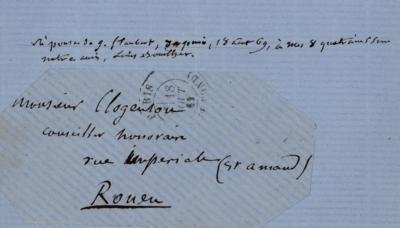 Réponse de g. flaubert, 18 aout 69, à mes 8 quatrains sur
notre ami, Louis Bouilhet.
PARIS
18
AOUT
69
Monsieur Clogenson
conseiller honoraire
rue impériale (St amand)
Rouen